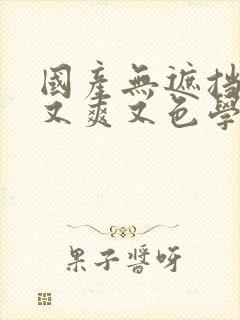 國產無遮挡
又爽又色學
果子醬呀